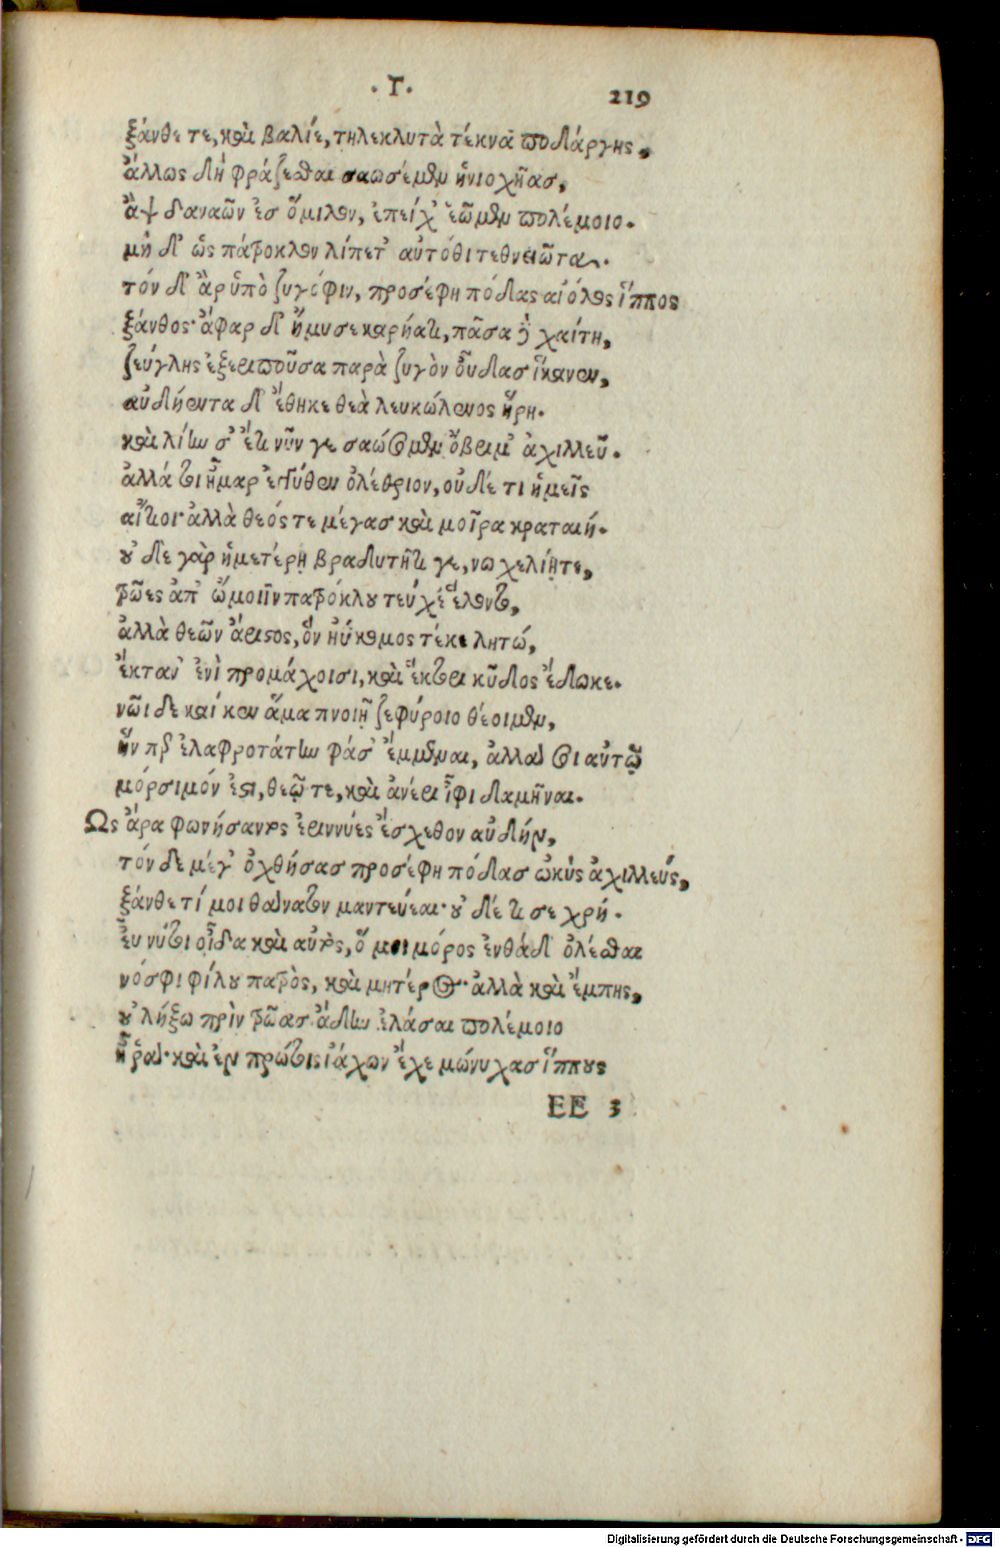 ·Τ· 219
ξάνθε τε, καὶ βαλίε, τηλεκλυτὰ τέκνα ποδάργης,
ἄλλως δὴ φράζεσθαι σαωσέμεν ἡνιοχῆας,
ἂψ δαναῶν ἐς ὅμιλον, ἐπείχ' ἑῶμεν πολέμοιο.
μὴ δ' ὡς πάτροκλον λίπετ' αὐτόθι τεθνειῶτα.
τὸν δ' ἂρ ὑπὸ ζυγόφιν, προσέφη πόδας αἰόλος ἵππος
ξάνθος· ἄφαρ δ' ἤμυσε καρήατι, πᾶσα δὲ χαίτη,
ζεύγλης ἐξεριποῦσα παρὰ ζυγὸν οὖδας ἵκανεν,
αὐδήεντα δ' ἔθηκε θεὰ λευκώλενος ἥρη.
καὶ λίην σ' ἔτι νῦν γε σαώσομεν ὄβριμ' ἀχιλλεῦ.
ἀλλά τοι ἦμαρ ἐγγύθεν ὀλέθριον, οὐδέ τι ἡμεῖς
αἴτιοι· ἀλλὰ θεός τε μέγας καὶ μοῖρα κραταιή.
οὐδὲ γὰρ ἡμετέρῃ βραδυτῆτί γε, νωχελίῃτε,
τρῶες ἀπ' ὤμοιϊν πατρόκλου τεύχε' ἕλοντο,
ἀλλὰ θεῶν ἄριστος, ὃν ἠΰκομος τέκε λητώ,
ἔκταν' ἐνὶ προμάχοισι, καὶ ἕκτορι κῦδος ἔδωκε.
νῶι δὲ καί κεν ἅμα πνοιῇ ζεφύροιο θέοιμεν,
ἥν περ ἐλαφροτάτην φάσ' ἔμμεναι, ἀλλὰ σοι αὐτῷ
μόρσιμόν ἐστι, θεῷ τε, καὶ ἀνέρι ἶφι δαμῆναι.
Ως ἄρα φωνήσαντος ἐριννύες ἔσχεθον αὐδήν,
τὸν δὲ μέγ' ὀχθήσας προσέφη πόδας ὠκὺς ἀχιλλεύς,
ξάνθε τί μοι θάνατον μαντεύεαι· οὐδέ τι σε χρή.
εὖ νύ τοι οἶδα καὶ αὐτὸς, ὅ μοι μόρος ἐνθάδ' ὀλέσθαι
νόσφι φίλου πατρὸς, καὶ μητέρος· ἀλλὰ καὶ ἔμπης,
οὐ λήξω πρὶν τρῶας ἄδην ἐλάσαι πολέμοιο
ἦ ῥα· καὶ ἐν πρώτοις ἰάχων ἔχε μώνυχας ἵππους
EE 3
Digitalisierung gefördert durch die Deutsche Forschungsgemeinschaft - DFG